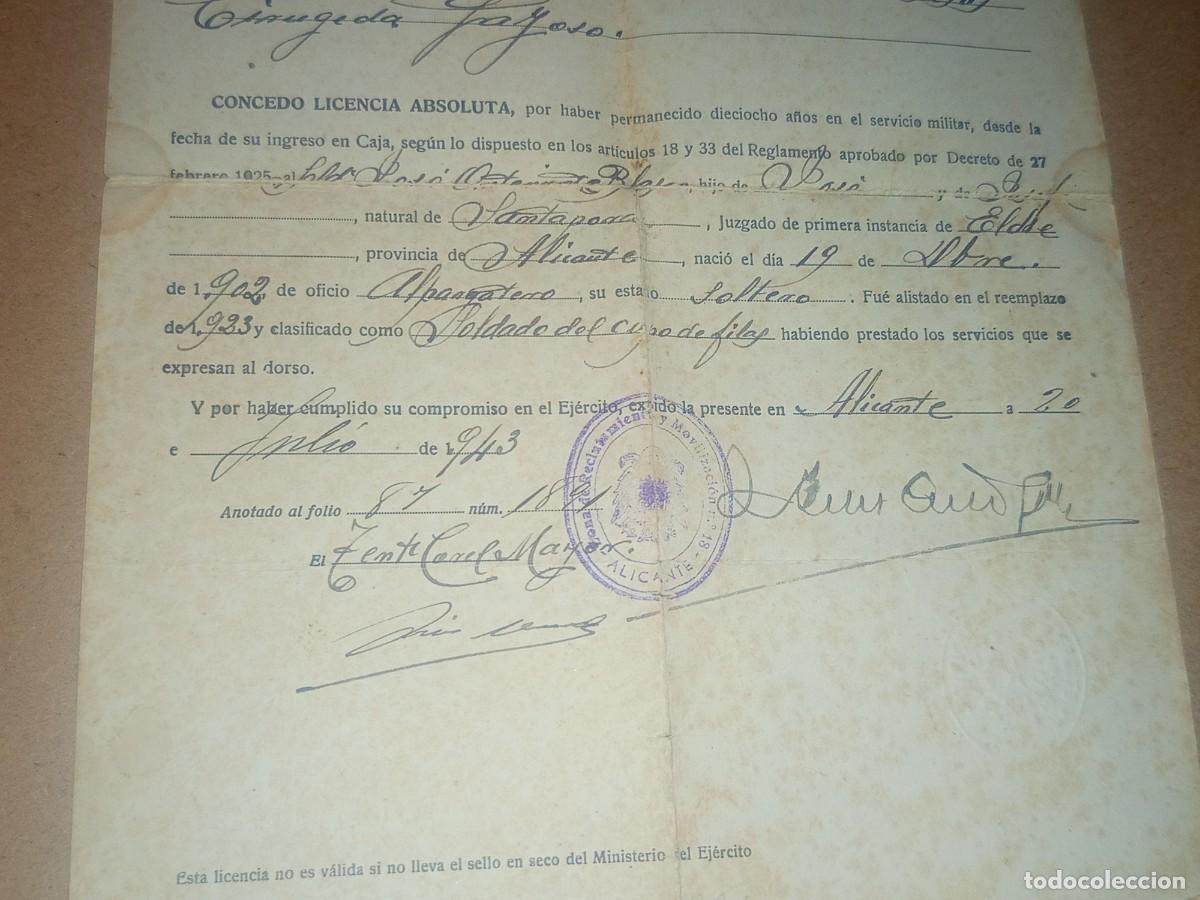 Cirugeda Gayoso.
CONCEDO LICENCIA ABSOLUTA, por haber permanecido dieciocho años en el servicio militar, desde la
fecha de su ingreso en Caja, según lo dispuesto en los artículos 18 y 33 del Reglamento aprobado por Decreto de 27
febrero 1925 al José hijo de José y de
, natural de Santapona, Juzgado de primera instancia de Elche
, provincia de Alicante, nació el día 19 de Dbre.
de 1.902, de oficio Alpargatero, su estado soltero. Fué alistado en el reemplazo
de 1.923 y clasificado como Soldado del cupo de filas habiendo prestado los servicios que se
expresan al dorso.
Y por haber cumplido su compromiso en el Ejército, expido la presente en Alicante a 20
e Julio de 1943
Anotado al folio 87 núm.
El Tente Corel Mayor.
Zona de Reclutamiento y Movilización n.º 18
ALICANTE
Esta licencia no es válida si no lleva el sello en seco del Ministerio del Ejército
todocoleccion